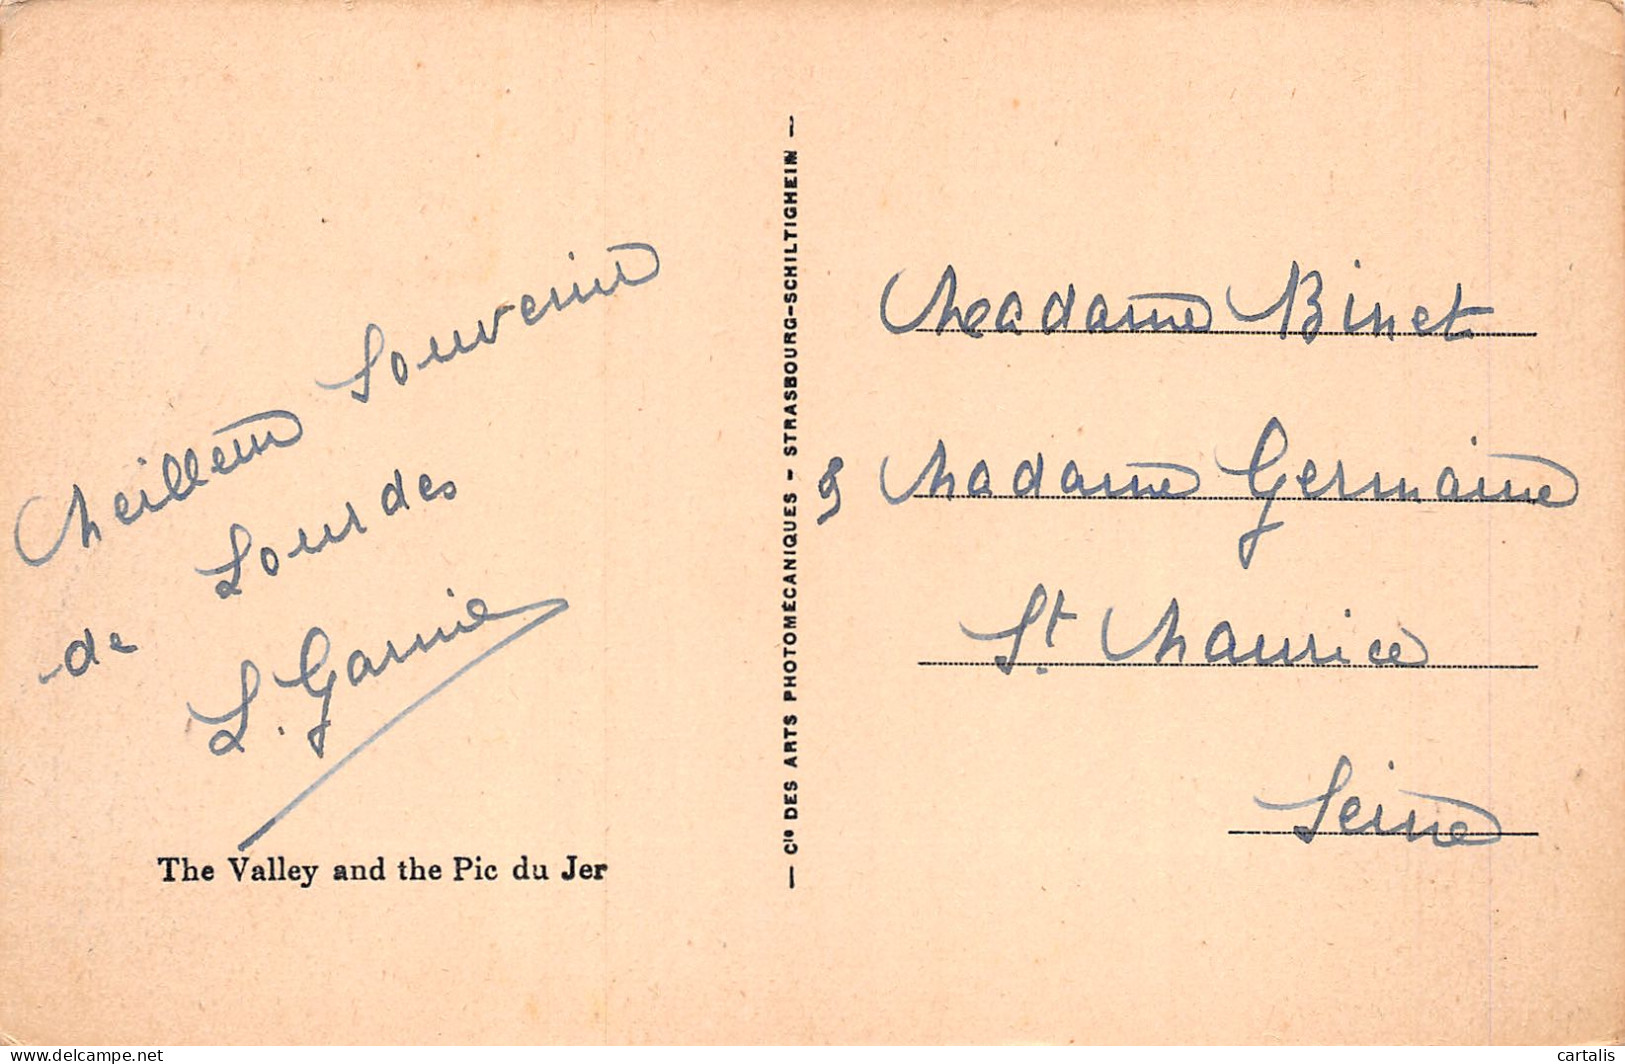 Meilleur Souvenir
de Lourdes
L. Garnier
The Valley and the Pic du Jer
— Cie DES ARTS PHOTOMÉCANIQUES - STRASBOURG-SCHILTIGHEIM —
Madame Binet
& Madame Germaine
St. Maurice
Seine
cartalis
https://www.delcampe.net